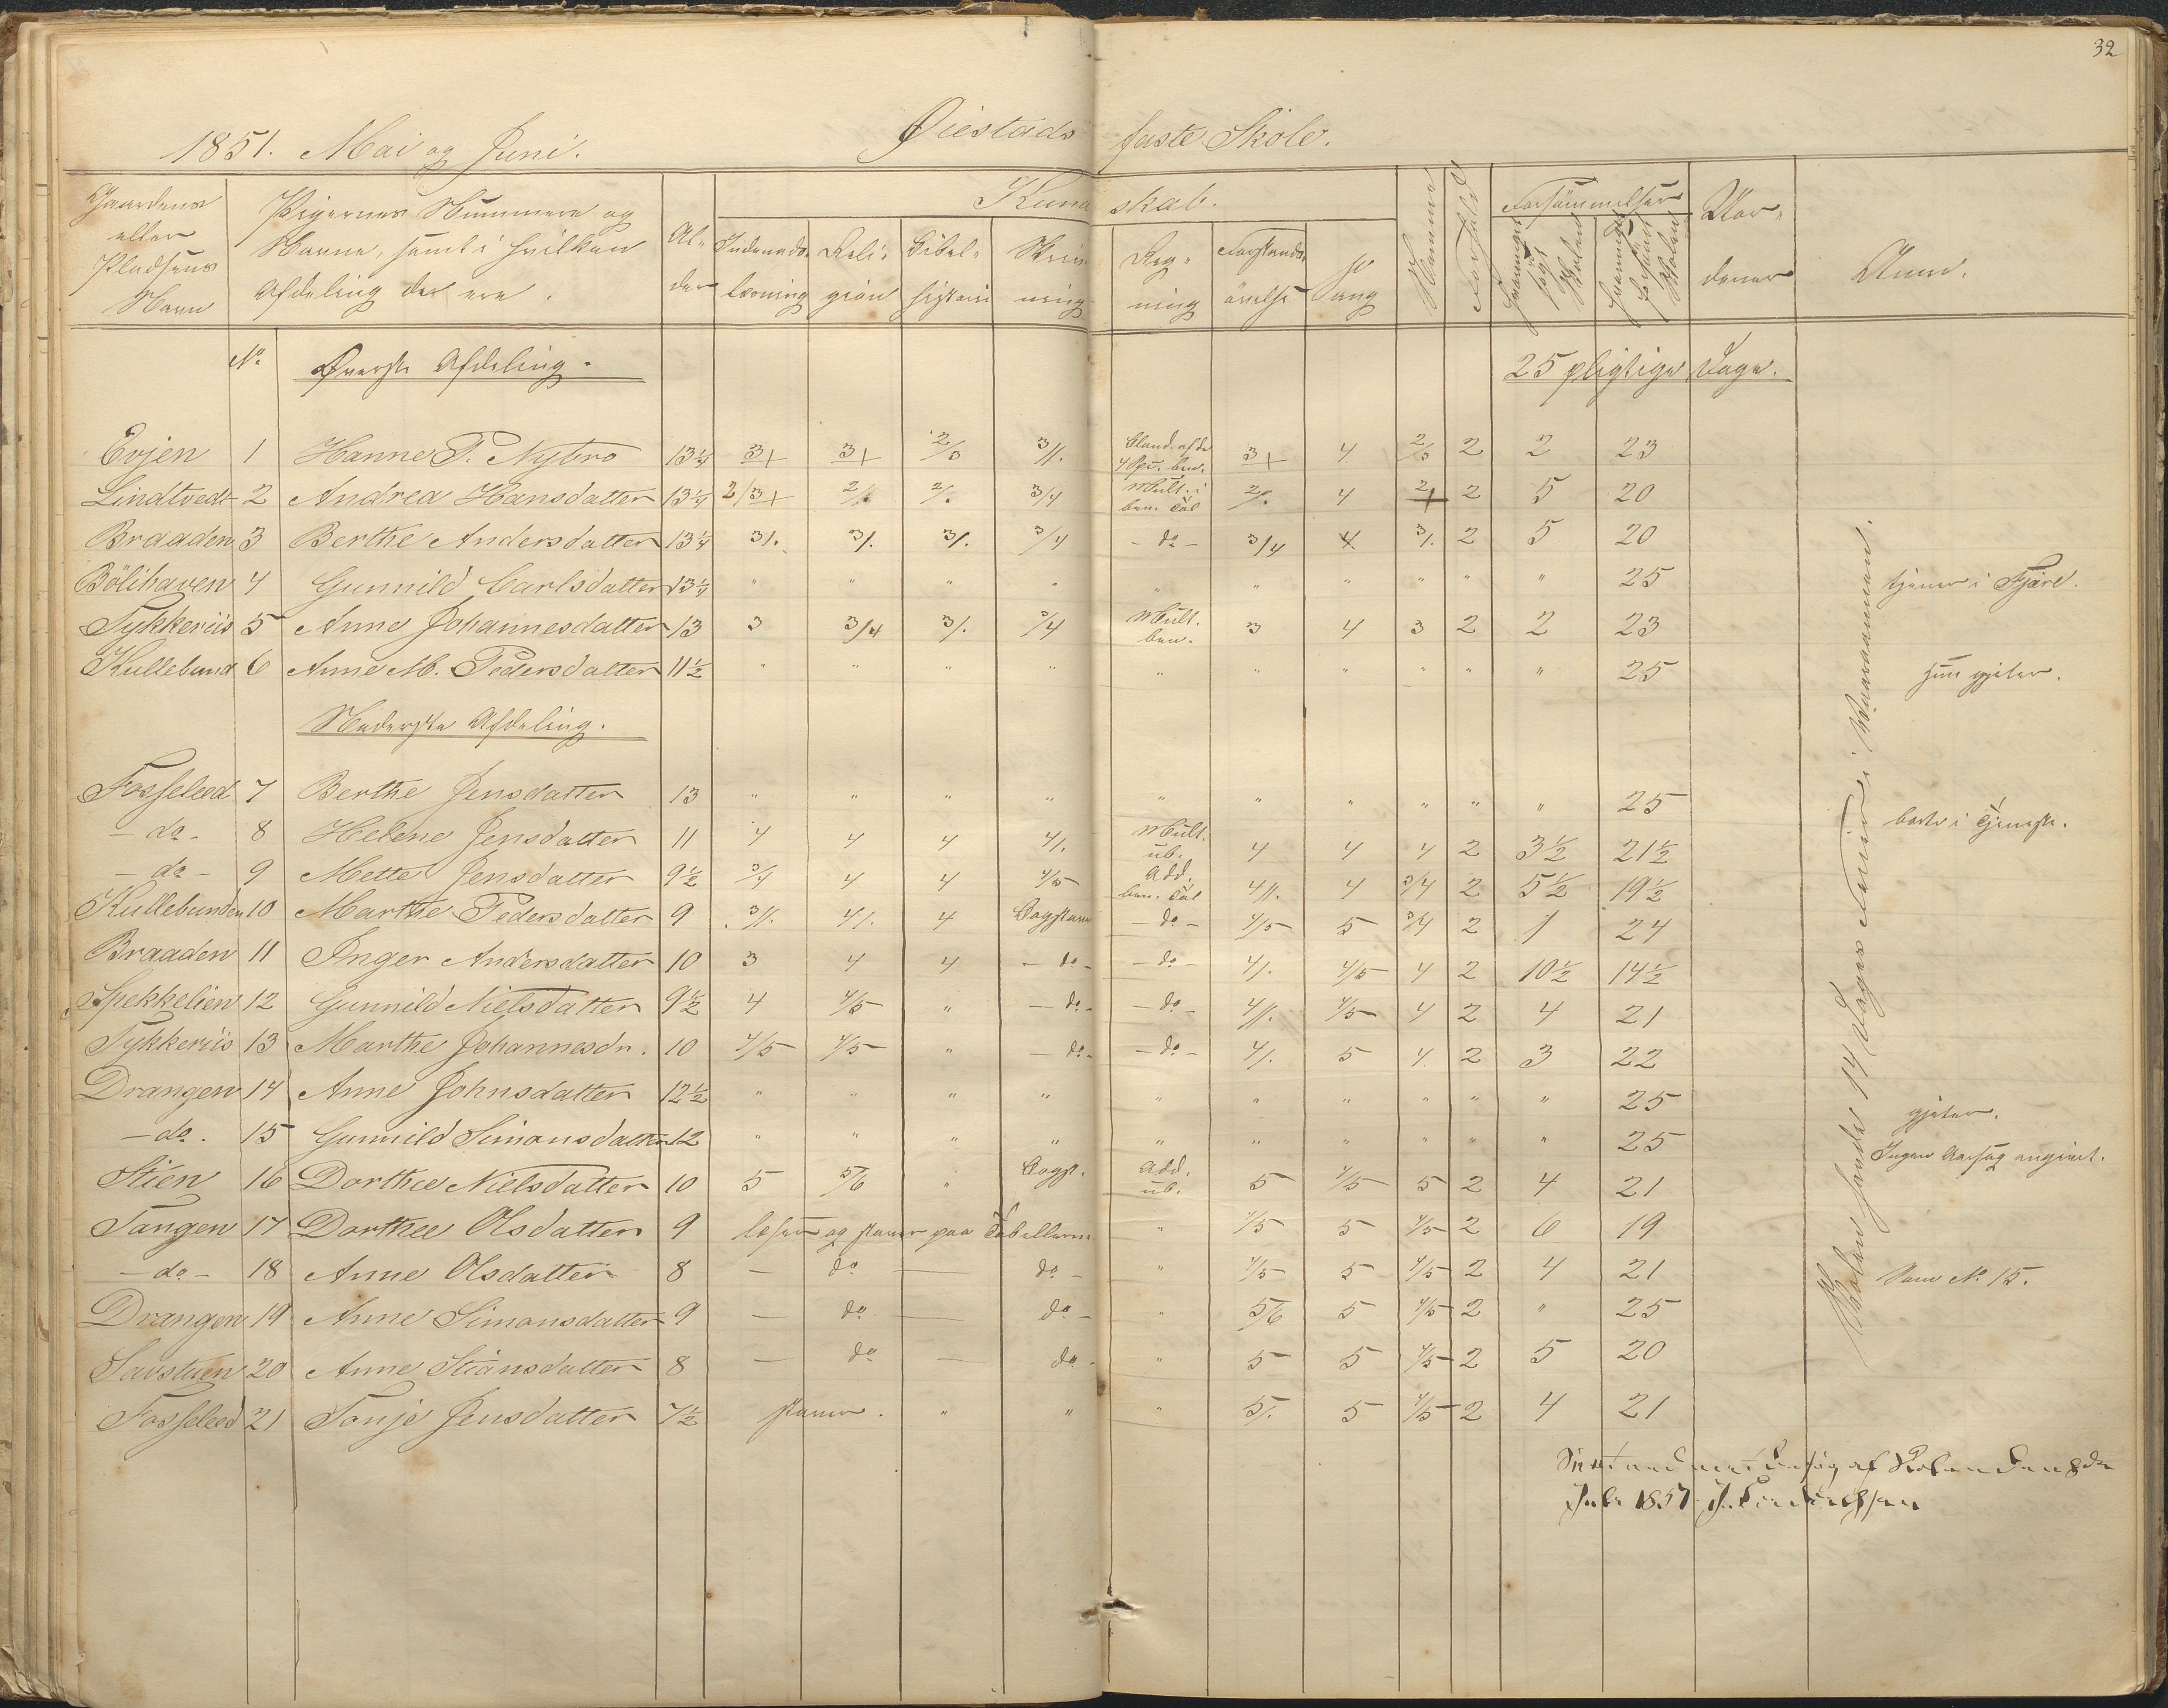 32
1851. Mai og Juni. Øiestads faste Skole.
Gaardens eller Pladsens Navn
Pigernes Nummere og Navne, samt i hvilken Afdeling de ere.
Alder
Kundskab.
Indenadslæsning
Religion
Bibelhistorie
Skrivning
Regning
Forstandsövelse
Sang
Forhold
Forsömmelser
Anm.
No Øverste Afdeling. 25 pligtige Dage.
Evjen 1 Hanne P. Nybro 13¼ 3+ 3+ 2/3 3//. 3+ 4 2/3 2 2 23
Lindtvedt 2 Andrea Hansdatter 13¼ 2/3+ 2/. 2/. 3/4 Mult. i ben. Tal 2/. 4 2+ 2 5 20
Braaden 3 Berthe Andersdatter 13¼ 3/. 3/. 3/. 3/4 - do - 3/4 4 3/. 2 5 20
Bölihaven 4 Gunnild Carlsdatter 13¼ " " " " " " " " " " 25 tjener i Fjære.
Tykkeriis 5 Anne Johannesdatter 13 3 3/4 3/. 3/4 Mult. ben. 3 4 3 2 2 23
Kullebund 6 Anne M. Pedersdatter 11½ " " " " " " " " " " 25 hun gjeter.
Nederste Afdeling.
Fosseleed 7 Berthe Jensdatter 13 " " " " " " " " " " 25 borte i Tjeneste.
- do - 8 Helene Jensdatter 11 4 4 4 4/. Mult. üb. 4 4 4 2 3½ 21½
- do - 9 Mette Jensdatter 9½ 3/4 4 4 4/5 Add. ben. Tal 4//. 4 3/4 2 5½ 19½
Kullebunden 10 Marthe Pedersdatter 9 3//. 4/. 4 Bogstaver - do - 4/5 5 3/4 2 1 24
Braaden 11 Inger Andersdatter 10 3 4 4 - do - - do - 4/. 4/5 4 2 10½ 14½
Spekkelien 12 Gunnild Nielsdatter 9½ 4 4/5 " - do - - do - 4//. 4/5 4 2 4 21
Tykkeriis 13 Marthe Johannesdr. 10 4/5 4/5 " - do - - do - 4/. 5 4 2 3 22
Drangen 14 Anne Johnsdatter 12½ " " " " " " " " " " 25 gjeter.
- do. 15 Gunnild Simonsdatter 12 " " " " " " " " " " 25 Ingen Aarsag angivet.
Stien 16 Dorthee Nielsdatter 10 5 5/6 " Bogst. Add. üb. 5 4/5 5 2 4 21
Tangen 17 Dorthee Olsdatter 9 læser og staver paa Tabellerne " 4/5 5 4/5 2 6 19
- do - 18 Anne Olsdatter 8 — do — do - " 4/5 5 4/5 2 4 21
Drangen 19 Anne Simonsdatter 9 — do — do - " 5/6 5 4/5 2 " 25 Som No 15.
Savstuen 20 Anne Stiansdatter 8 — do — do - " 5 5 4/5 2 5 20
Fosseleed 21 Tonje Jensdatter 7½ staver. " " " 5/. 5 4/5 2 4 21
Skolen havde 14 Dages Ferie i Vaaraannen.